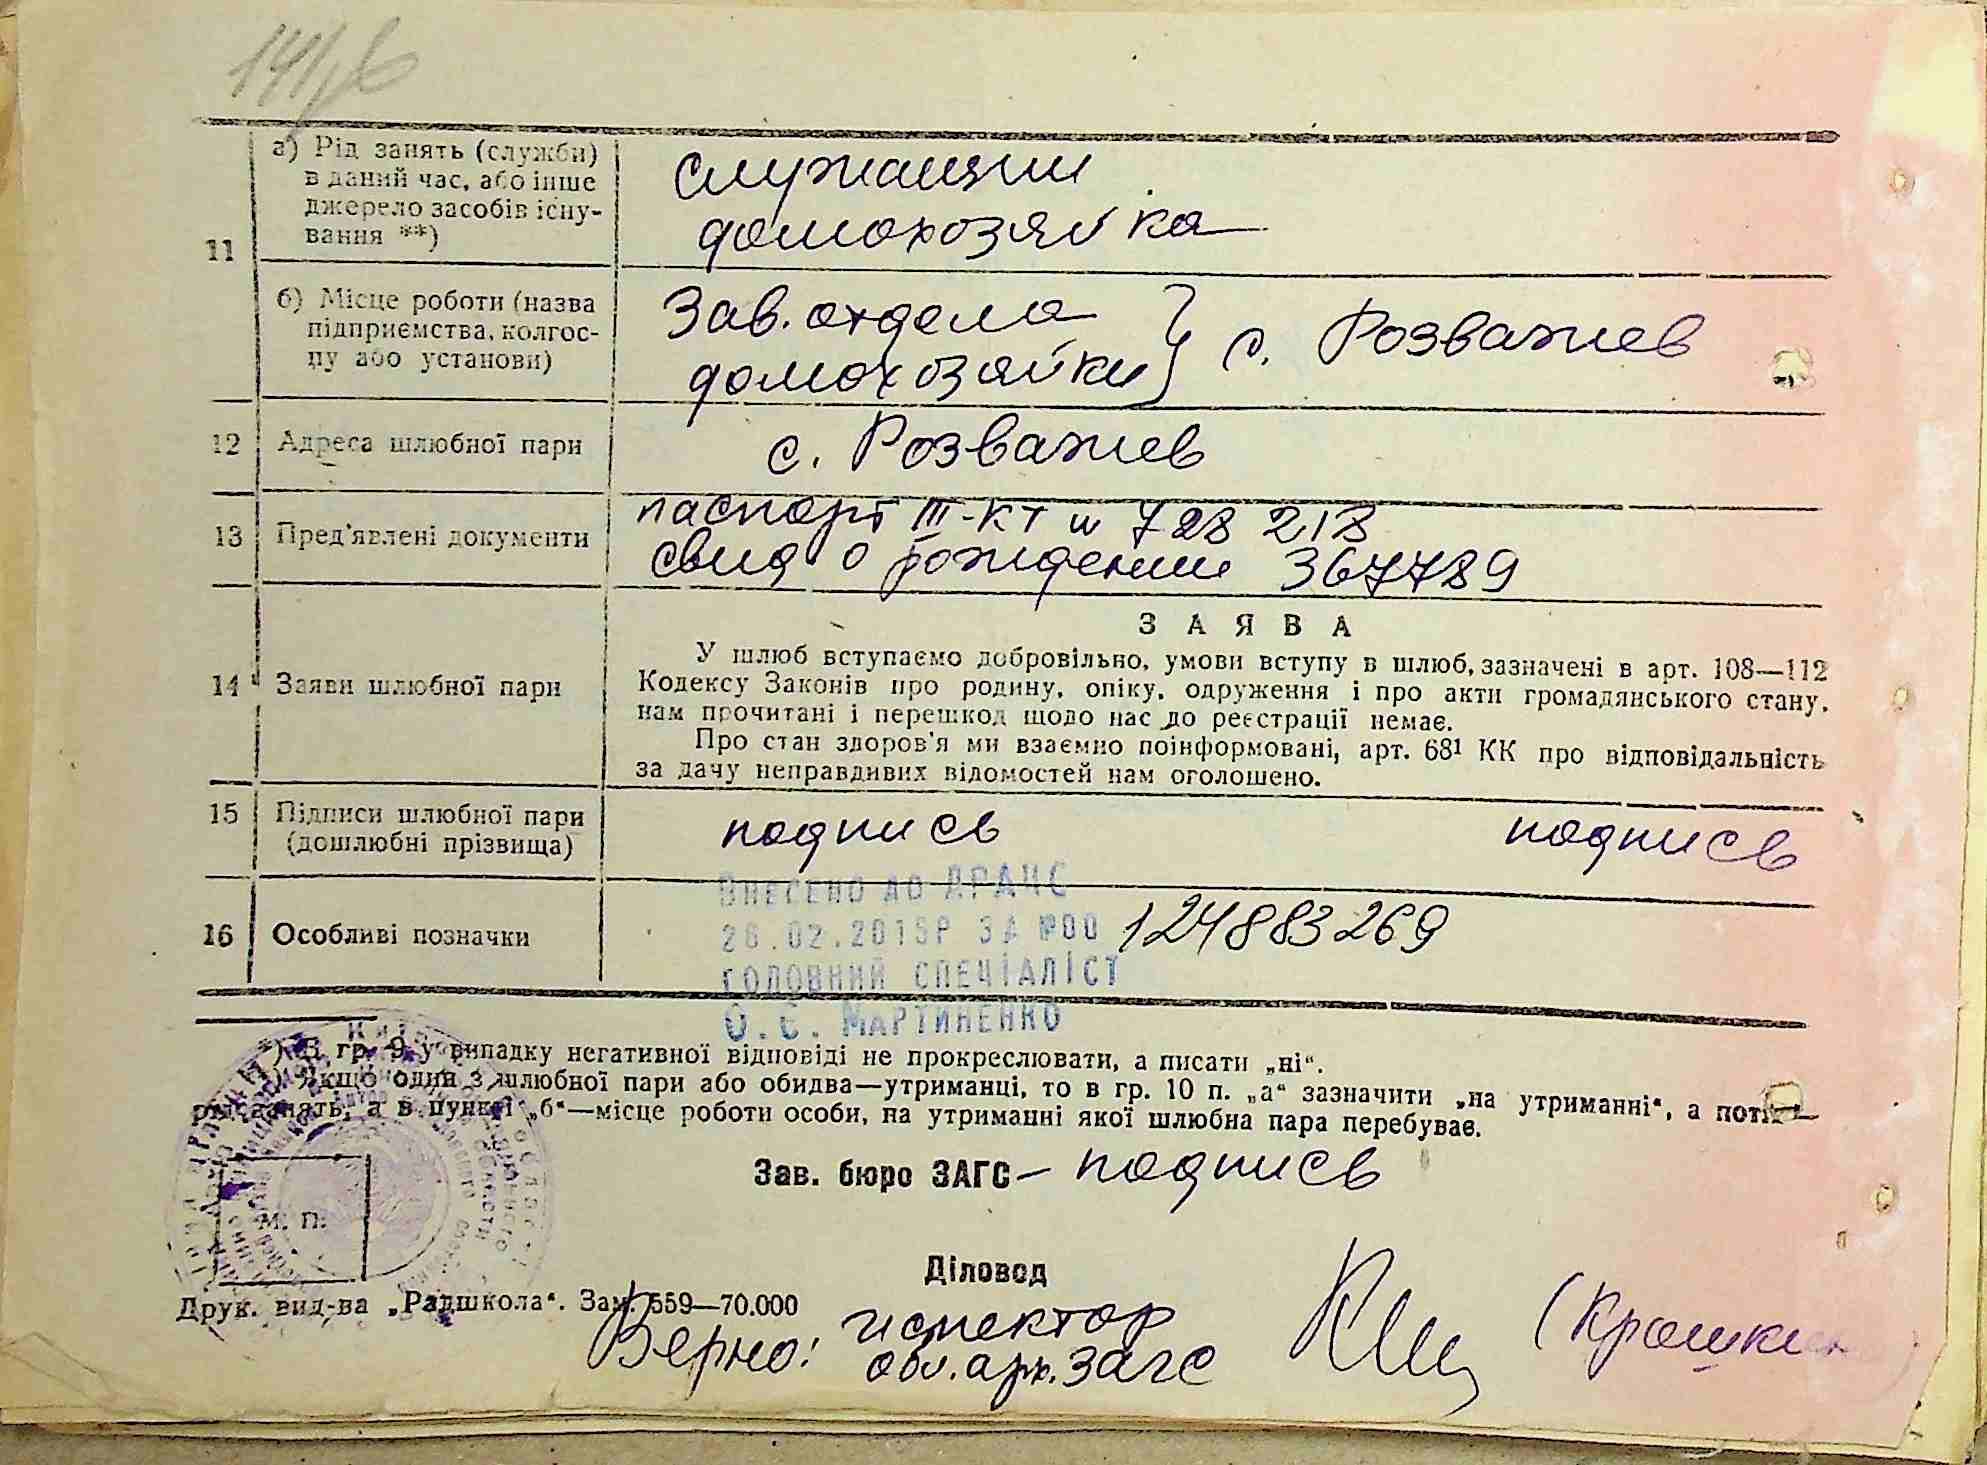 а) Рід занять (служби)
в даний час, або інше
джерело засобів існу-
вання **)
служащий
домохозяйка
11
б) Місце роботи (назва
підприємства, колгос-
пу або установи)
Зав. отдела
домохозяйки } с. Розважев
12 Адреса шлюбної пари
с. Розважев
13 Пред'явлені документи
паспорт III-КТ № 728 218
свид о рождении 367789
14 Заяви шлюбної пари
ЗАЯВА
У шлюб вступаємо добровільно, умови вступу в шлюб, зазначені в арт. 108—112
Кодексу Законів про родину, опіку, одруження і про акти громадянського стану,
нам прочитані і перешкод щодо нас до реєстрації немає.
Про стан здоров'я ми взаємно поінформовані, арт. 68¹ КК про відповідальність
за дачу неправдивих відомостей нам оголошено.
15 Підписи шлюбної пари
(дошлюбні прізвища)
подпись подпись
16 Особливі позначки
Внесено до ДРАЦС
26.02.2015Р ЗА №00 124883269
головний спеціаліст
О.Є. Мартиненко
*) В гр. 9 у випадку негативної відповіді не прокреслювати, а писати „ні“.
Якщо один з шлюбної пари або обидва—утриманці, то в гр. 10 п. „а“ зазначити „на утриманні“, а потім
рід занять, а в пункті „б“—місце роботи особи, на утриманні якої шлюбна пара перебуває.
Зав. бюро ЗАГС – подпись
М. П.
Діловод
Друк. вид-ва „Радшкола“. Зам. 559—70.000
Верно: испектор
обл. арх. ЗАГС (Крошкин